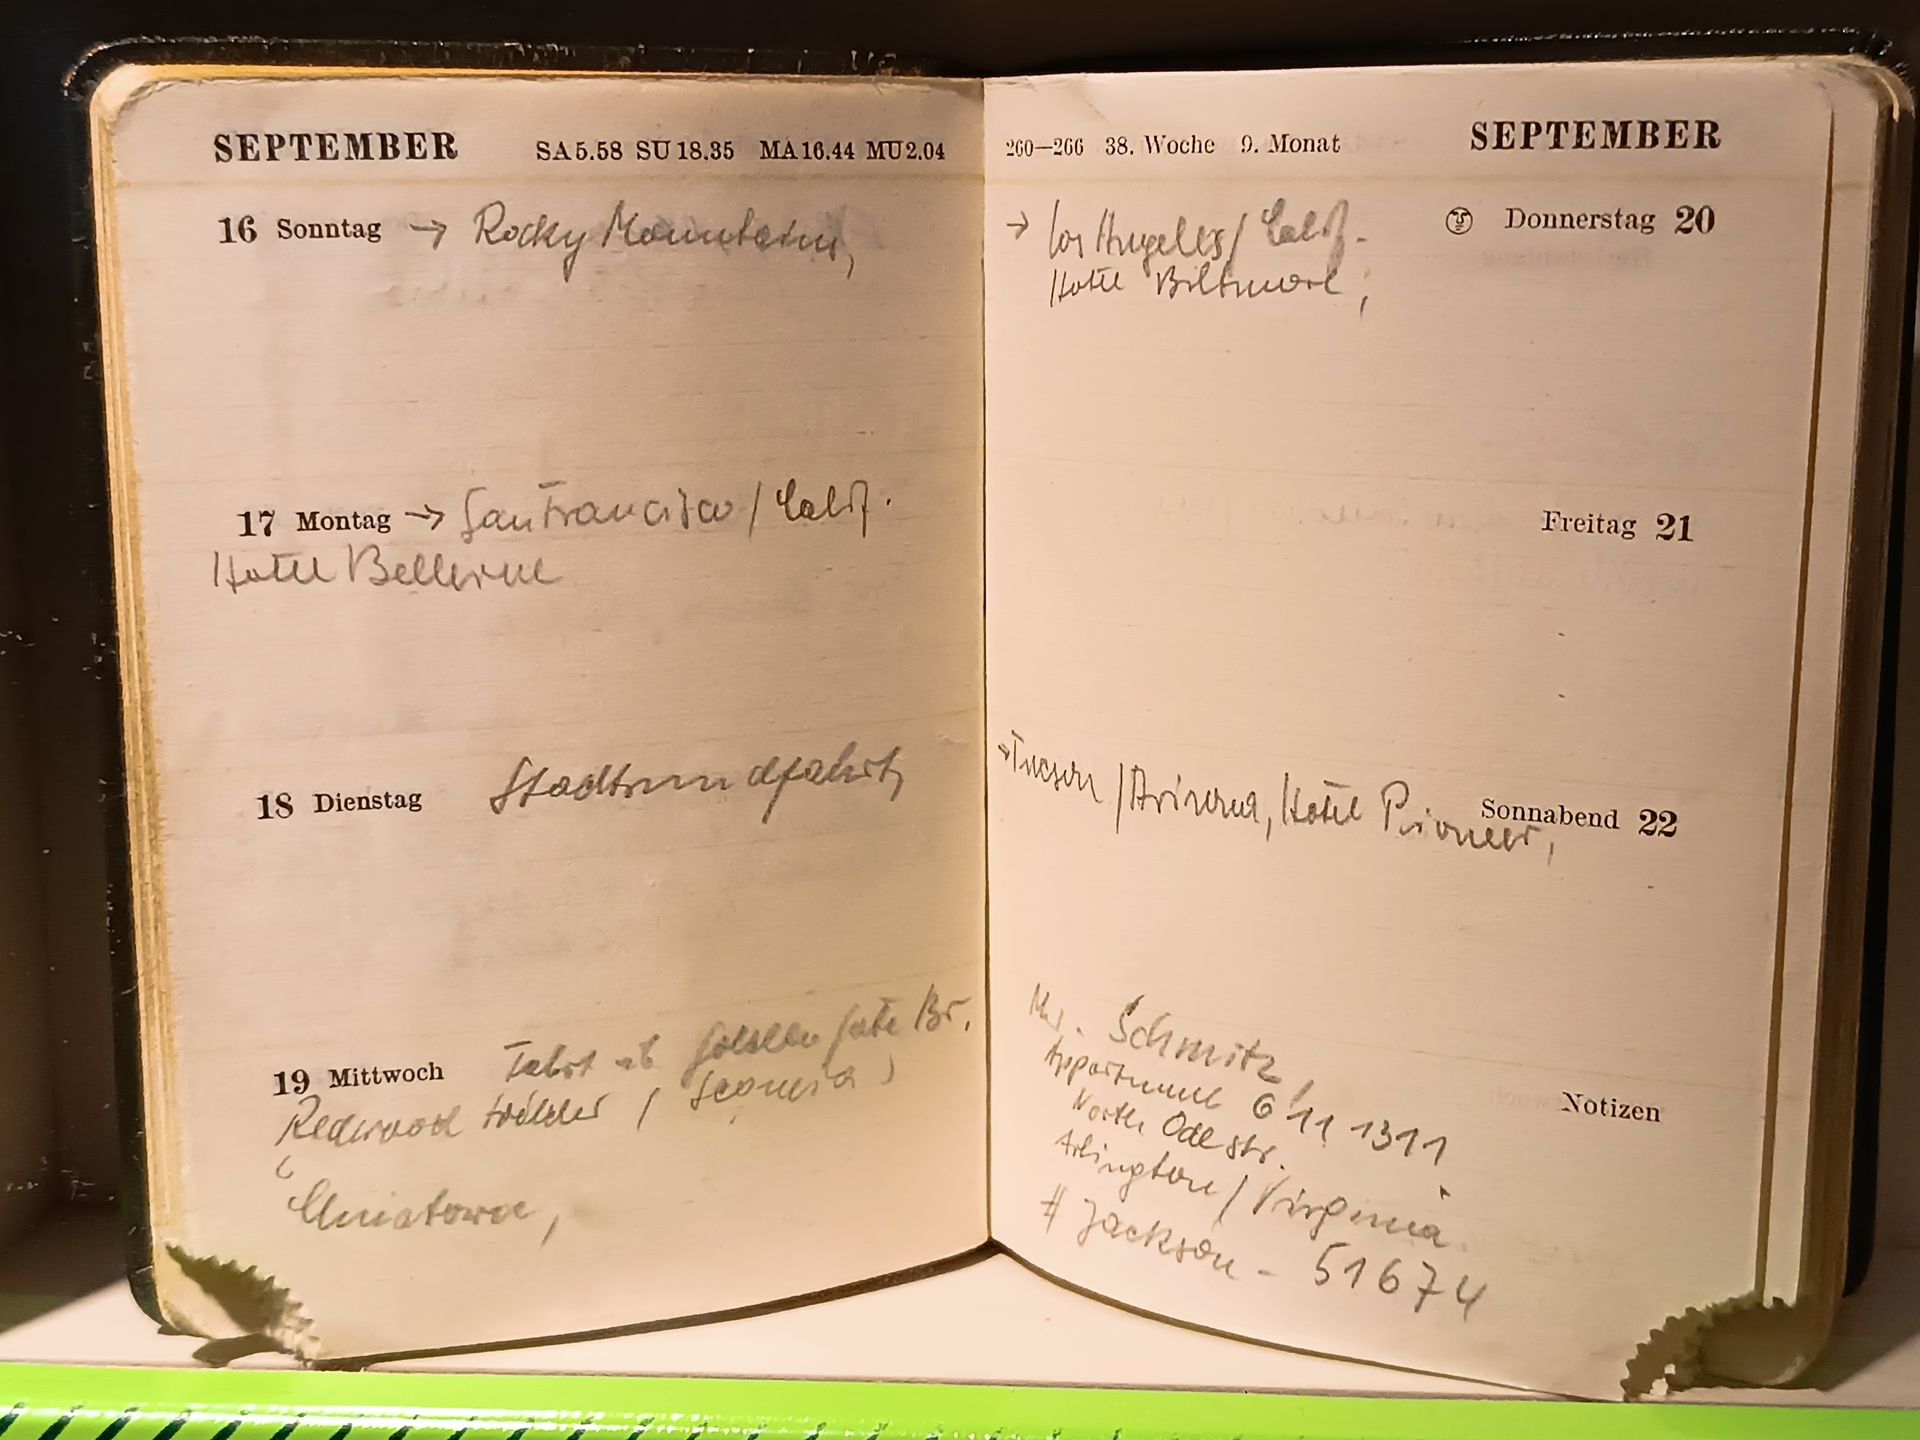 SEPTEMBER SA 5.58 SU 18.35 MA 16.44 MU 2.04
16 Sonntag → Rocky Mountains,
17 Montag → San Francisco / Calif.
Hotel Bellevue
18 Dienstag Stadtrundfahrt,
19 Mittwoch Fahrt Golden Gate Br.
Redwood Wälder /
260—266 38. Woche 9. Monat SEPTEMBER
→ Los Angeles / Calif. Donnerstag 20
Hotel Biltmore,
Freitag 21
→ Tucson / Arizona, Hotel Pioneer, Sonnabend 22
Schmitz,
Appartment 611 1311
North Ode Str.
Arlington / Virginia
Notizen
# Jackson - 51674